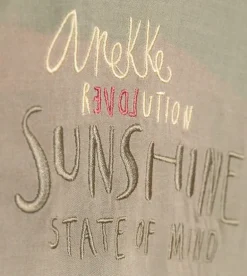 anekke
REVOLUTION
SUNSHINE
STATE OF MIND